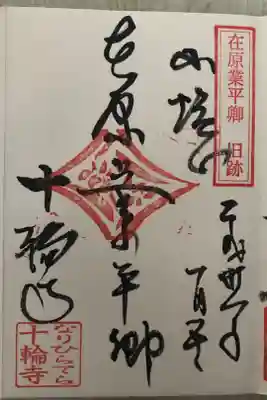 在原業平卿 旧跡
平成卅一年
小塩山
在原業平卿
十輪寺
なりひらでら
十輪寺